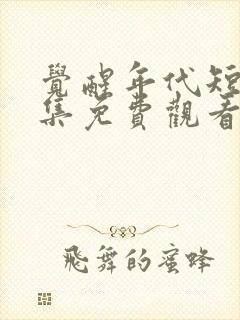 覺醒年代短
集免費觀看
飛舞的蜜蜂